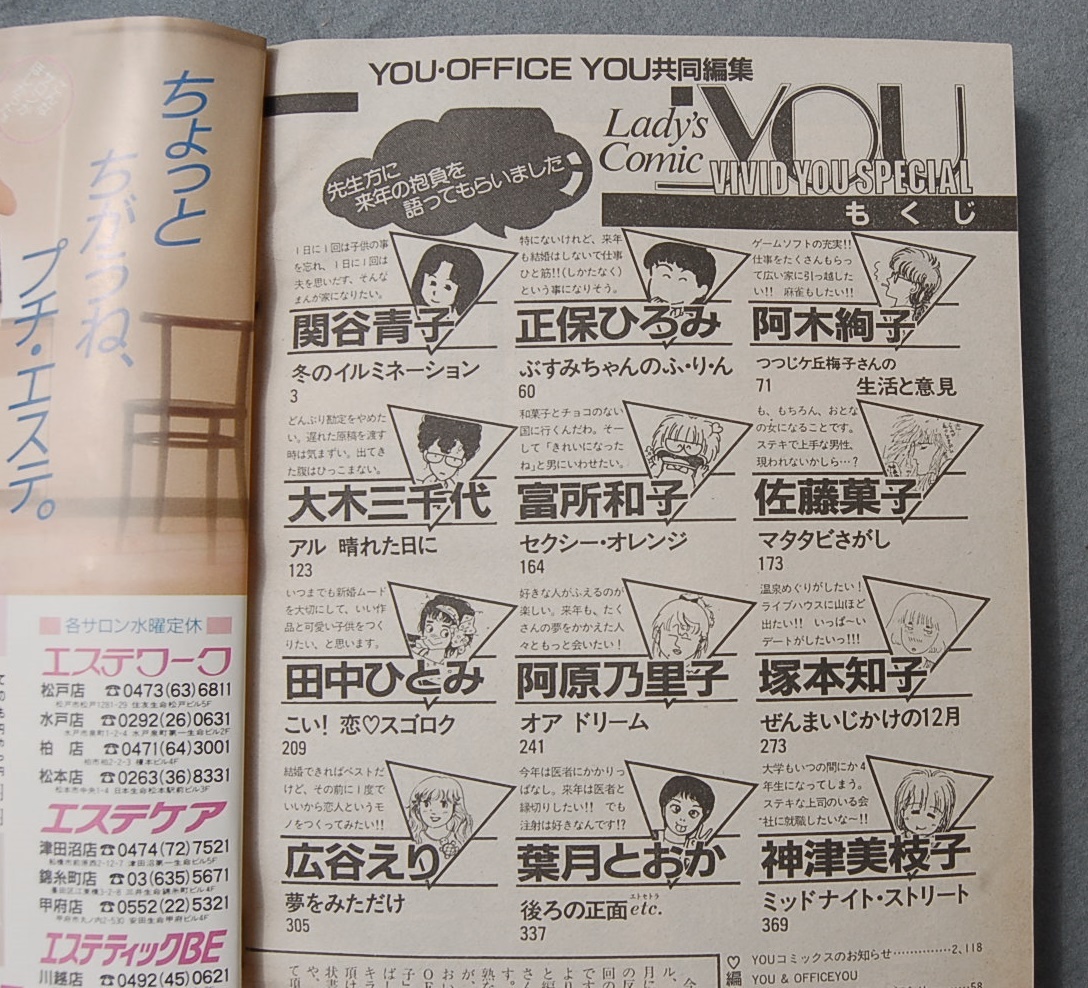 ちょっと
ちがうね、
プチ・エステ。
各サロン水曜定休
エステワーク
松戸店 ☎0473(63)6811
松戸市松戸1281-29 住友生命松戸ビル5F
水戸店 ☎0292(26)0631
水戸市泉町1-2-4 水戸泉町第一生命ビル2F
柏 店 ☎0471(64)3001
柏市柏2-2-3 榎本ビル4F
松本店 ☎0263(36)8331
松本市中央1-4 日本生命松本駅前ビル3F
エステケア
津田沼店 ☎0474(72)7521
船橋市前原西2-12-7 津田沼第一生命ビル5F
錦糸町店 ☎03(635)5671
甲府店 ☎0552(22)5321
エステティックBE
川越店 ☎0492(45)0621
YOU・OFFICE YOU共同編集
Lady's
Comic
YOU
VIVID YOU SPECIAL
もくじ
先生方に
来年の抱負を
語ってもらいました
1日に1回は子供の事
を忘れ、1日に1回は
夫を思いだす、そんな
まんが家になりたい。
関谷青子
冬のイルミネーション
3
特にないけれど、来年
も結婚はしないで仕事
ひと筋!!(しかたなく)
という事になりそう。
正保ひろみ
ぶすみちゃんのふ・り・ん
60
ゲームソフトの充実!!
仕事をたくさんもらっ
て広い家に引っ越した
い!! 麻雀もしたい!!
阿木絢子
つつじケ丘梅子さんの
生活と意見
71
どんぶり勘定をやめた
い。遅れた原稿を渡す
時は気まずい。出てき
た腹はひっこまない。
大木三千代
アル 晴れた日に
123
和菓子とチョコのない
国に行くんだわ。そー
して「きれいになった
ね」と男にいわせたい。
富所和子
セクシー・オレンジ
164
も、もちろん、おとな
の女になることです。
ステキで上手な男性、
現われないかしら…?
佐藤菓子
マタタビさがし
173
いつまでも新婚ムード
を大切にして、いい作
品と可愛い子供をつく
りたい、と思います。
田中ひとみ
こい! 恋♡スゴロク
209
好きな人がふえるのが
楽しい。来年も、たく
さんの夢をかかえた人
々ともっと会いたい!
阿原乃里子
オア ドリーム
241
温泉めぐりがしたい!
ライブハウスに山ほど
出たい!! いっぱ〜い
デートがしたいっ!!!
塚本知子
ぜんまいじかけの12月
273
結婚できればベストだ
けど、その前に1度で
いいから恋人というモ
ノをつくってみたい!!
広谷えり
夢をみただけ
305
今年は医者にかかりっ
ぱなし。来年は医者と
縁切りしたい!! でも
注射は好きなんです!?
葉月とおか
後ろの正面etc.
エトセトラ
337
大学もいつの間にか4
年生になってしまう。
ステキな上司のいる会
社に就職したいな〜!!
神津美枝子
ミッドナイト・ストリート
369
YOUコミックスのお知らせ…………2,118
YOU & OFFICEYOU
58
♡編